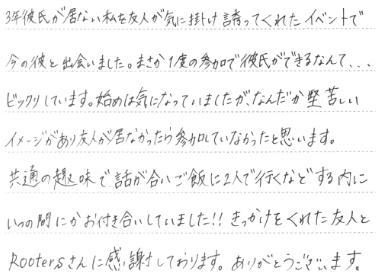 3年彼氏が居ない私を友人が気に掛け誘ってくれたイベントで
今の彼と出会いました。まさか1度の参加で彼氏ができるなんて、、、
ビックリしています。始めは気になっていましたが、なんだか堅苦しい
イメージがあり友人が居なかったら参加していなかったと思います。
共通の趣味で話が合いご飯に2人で行くなどする内に
いつの間にかお付き合いしていました!!きっかけをくれた友人と
Rootersさんに感謝しております。ありがとうございます。